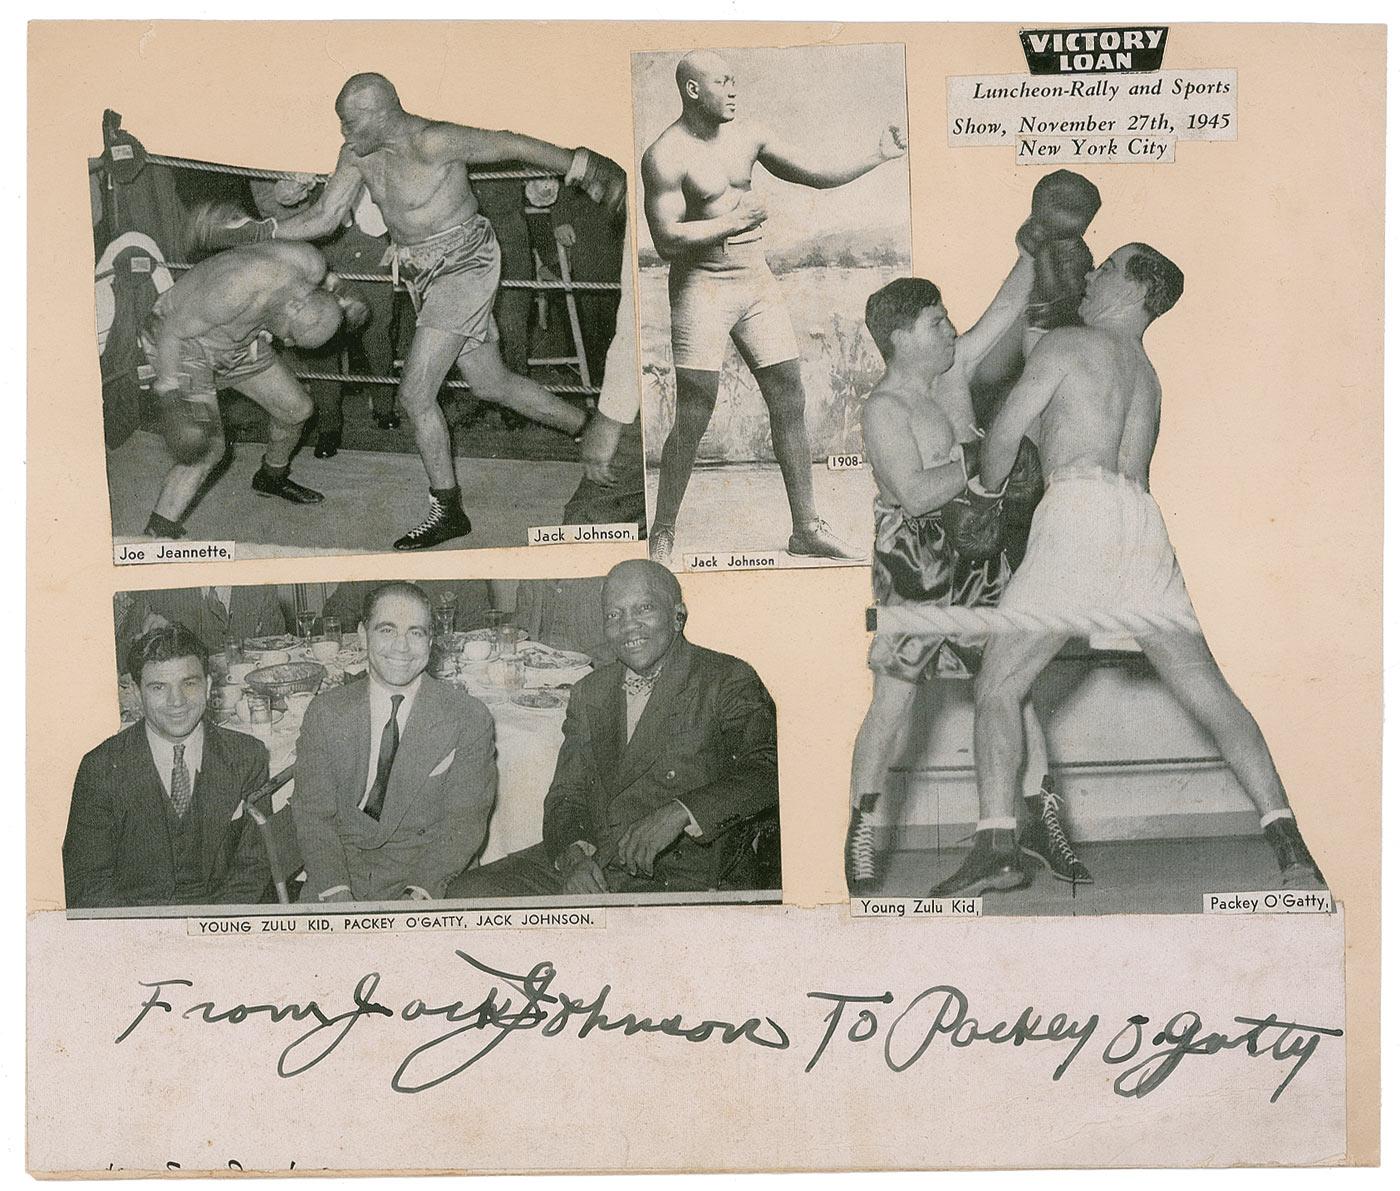 VICTORY
LOAN
Luncheon-Rally and Sports
Show, November 27th, 1945
New York City
1908-
Joe Jeannette,
Jack Johnson,
Jack Johnson
Young Zulu Kid,
Packey O'Gatty,
YOUNG ZULU KID, PACKEY O'GATTY, JACK JOHNSON.
From Jack Johnson To Packey O'Gatty